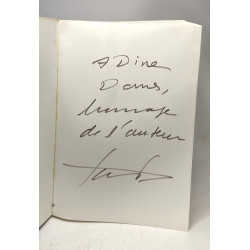 A Dina
Dams,
hommage
de l'auteur